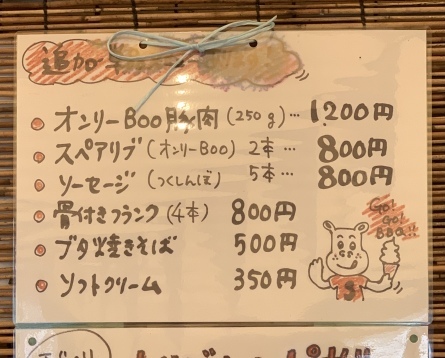 追加
オンリーBoo豚肉(250g)… 1,200円
スペアリブ(オンリーBoo) 2本… 800円
ソーセージ(つくしんぼ) 5本… 800円
骨付きフランク(4本) 800円
ブタ焼きそば 500円
ソフトクリーム 350円
Go!
Go!
BBQ!!